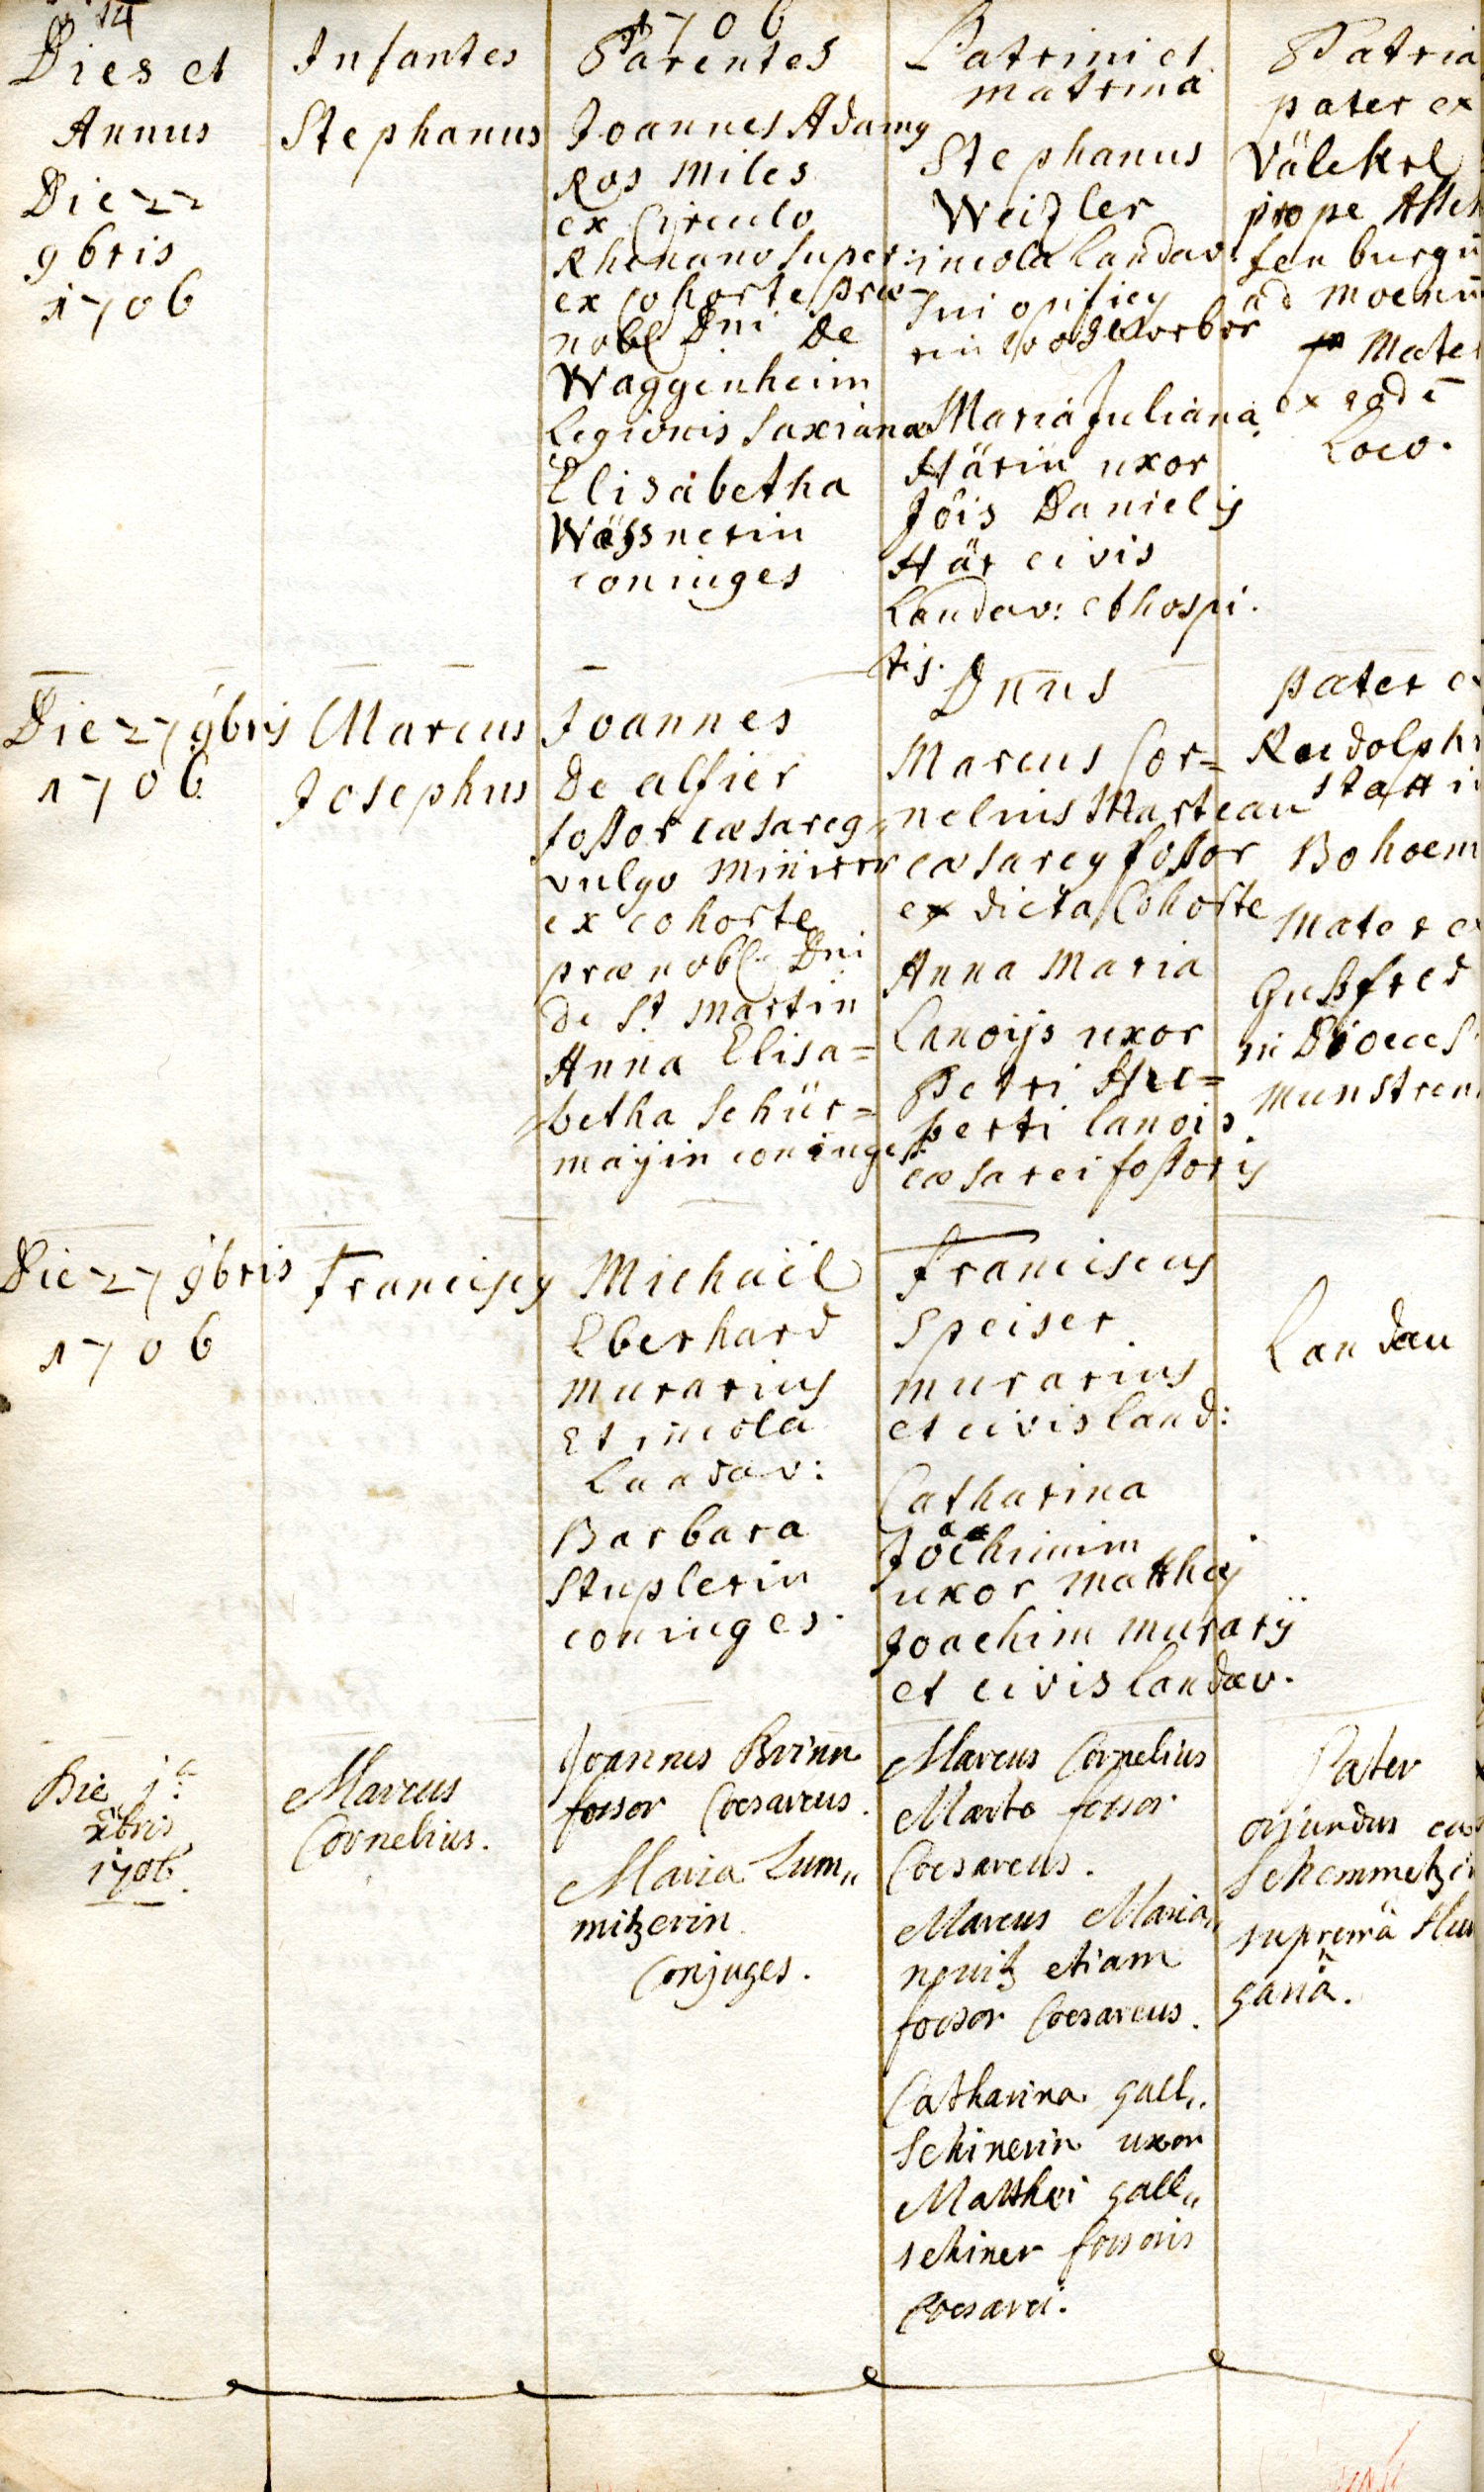 14
1706
Dies et
Annus
Infantes
Parentes
Patrini et
matrina
Patria
Die 22
9bris
1706
Stephanus
Joannes Adamy
Ros Miles
ex Circulo
Rhenano super:
ex cohorte præ-
nobl Dni De
Waggenheim
Legionis Saxianæ
Elisabetha
Wäßnerin
coniuges
Stephanus
Weizler
incola Landav:
Maria Juliana
Härin uxor
Jōis Danielis
Här civis
Landav: et hospi.
tis.
pater ex
prope
fenburgū
ad Moenū
Mater
ex eodē
Loco.
Die 27 9bris
1706
Marcus
Josephus
Joannes
De alfier
foßor cæsareg
vulgo Minierer
ex cohorte
prænobl Dni
de St Martin
Anna Elisa=
betha Schür=
mayin coniuges
Dnus
Marcus Cor=
nelius Marteau
cæsarey foßor
ex dicta Cohorte
Anna Maria
Lanoijs uxor
Petri Hu=
perti lanois
cæsarei foßoris
pater e
Rudolphi
statt i
Bohoem
Mater e
in Dioeces
Munstren
Die 27 9bris
1706
Franciscy
Michaël
Eberhard
murarius
Et incola
Landav:
Barbara
Stuplerin
coniuges.
Franciscus
Speiser
murarius
et civis land:
Catharina
Jöachimin
uxor Matthæj
Joachim murarij
et civis landav.
Landau
Die 1a
xbris
1706.
Marcus
Cornelius.
Joannes Brinn
fossor Coesareus.
Maria Lum„
mitzerin
Conjuges.
Marcus Cornelius
Marto fossor
Coesareus.
Marcus Maria„
nouitz etiam
fossor Coesareus.
Catharina gall„
schinerin uxor
Matthei gall„
schiner fossoris
Coesarei.
Pater
orjundus ex
Schemmetz
supremâ Hun
gariâ.